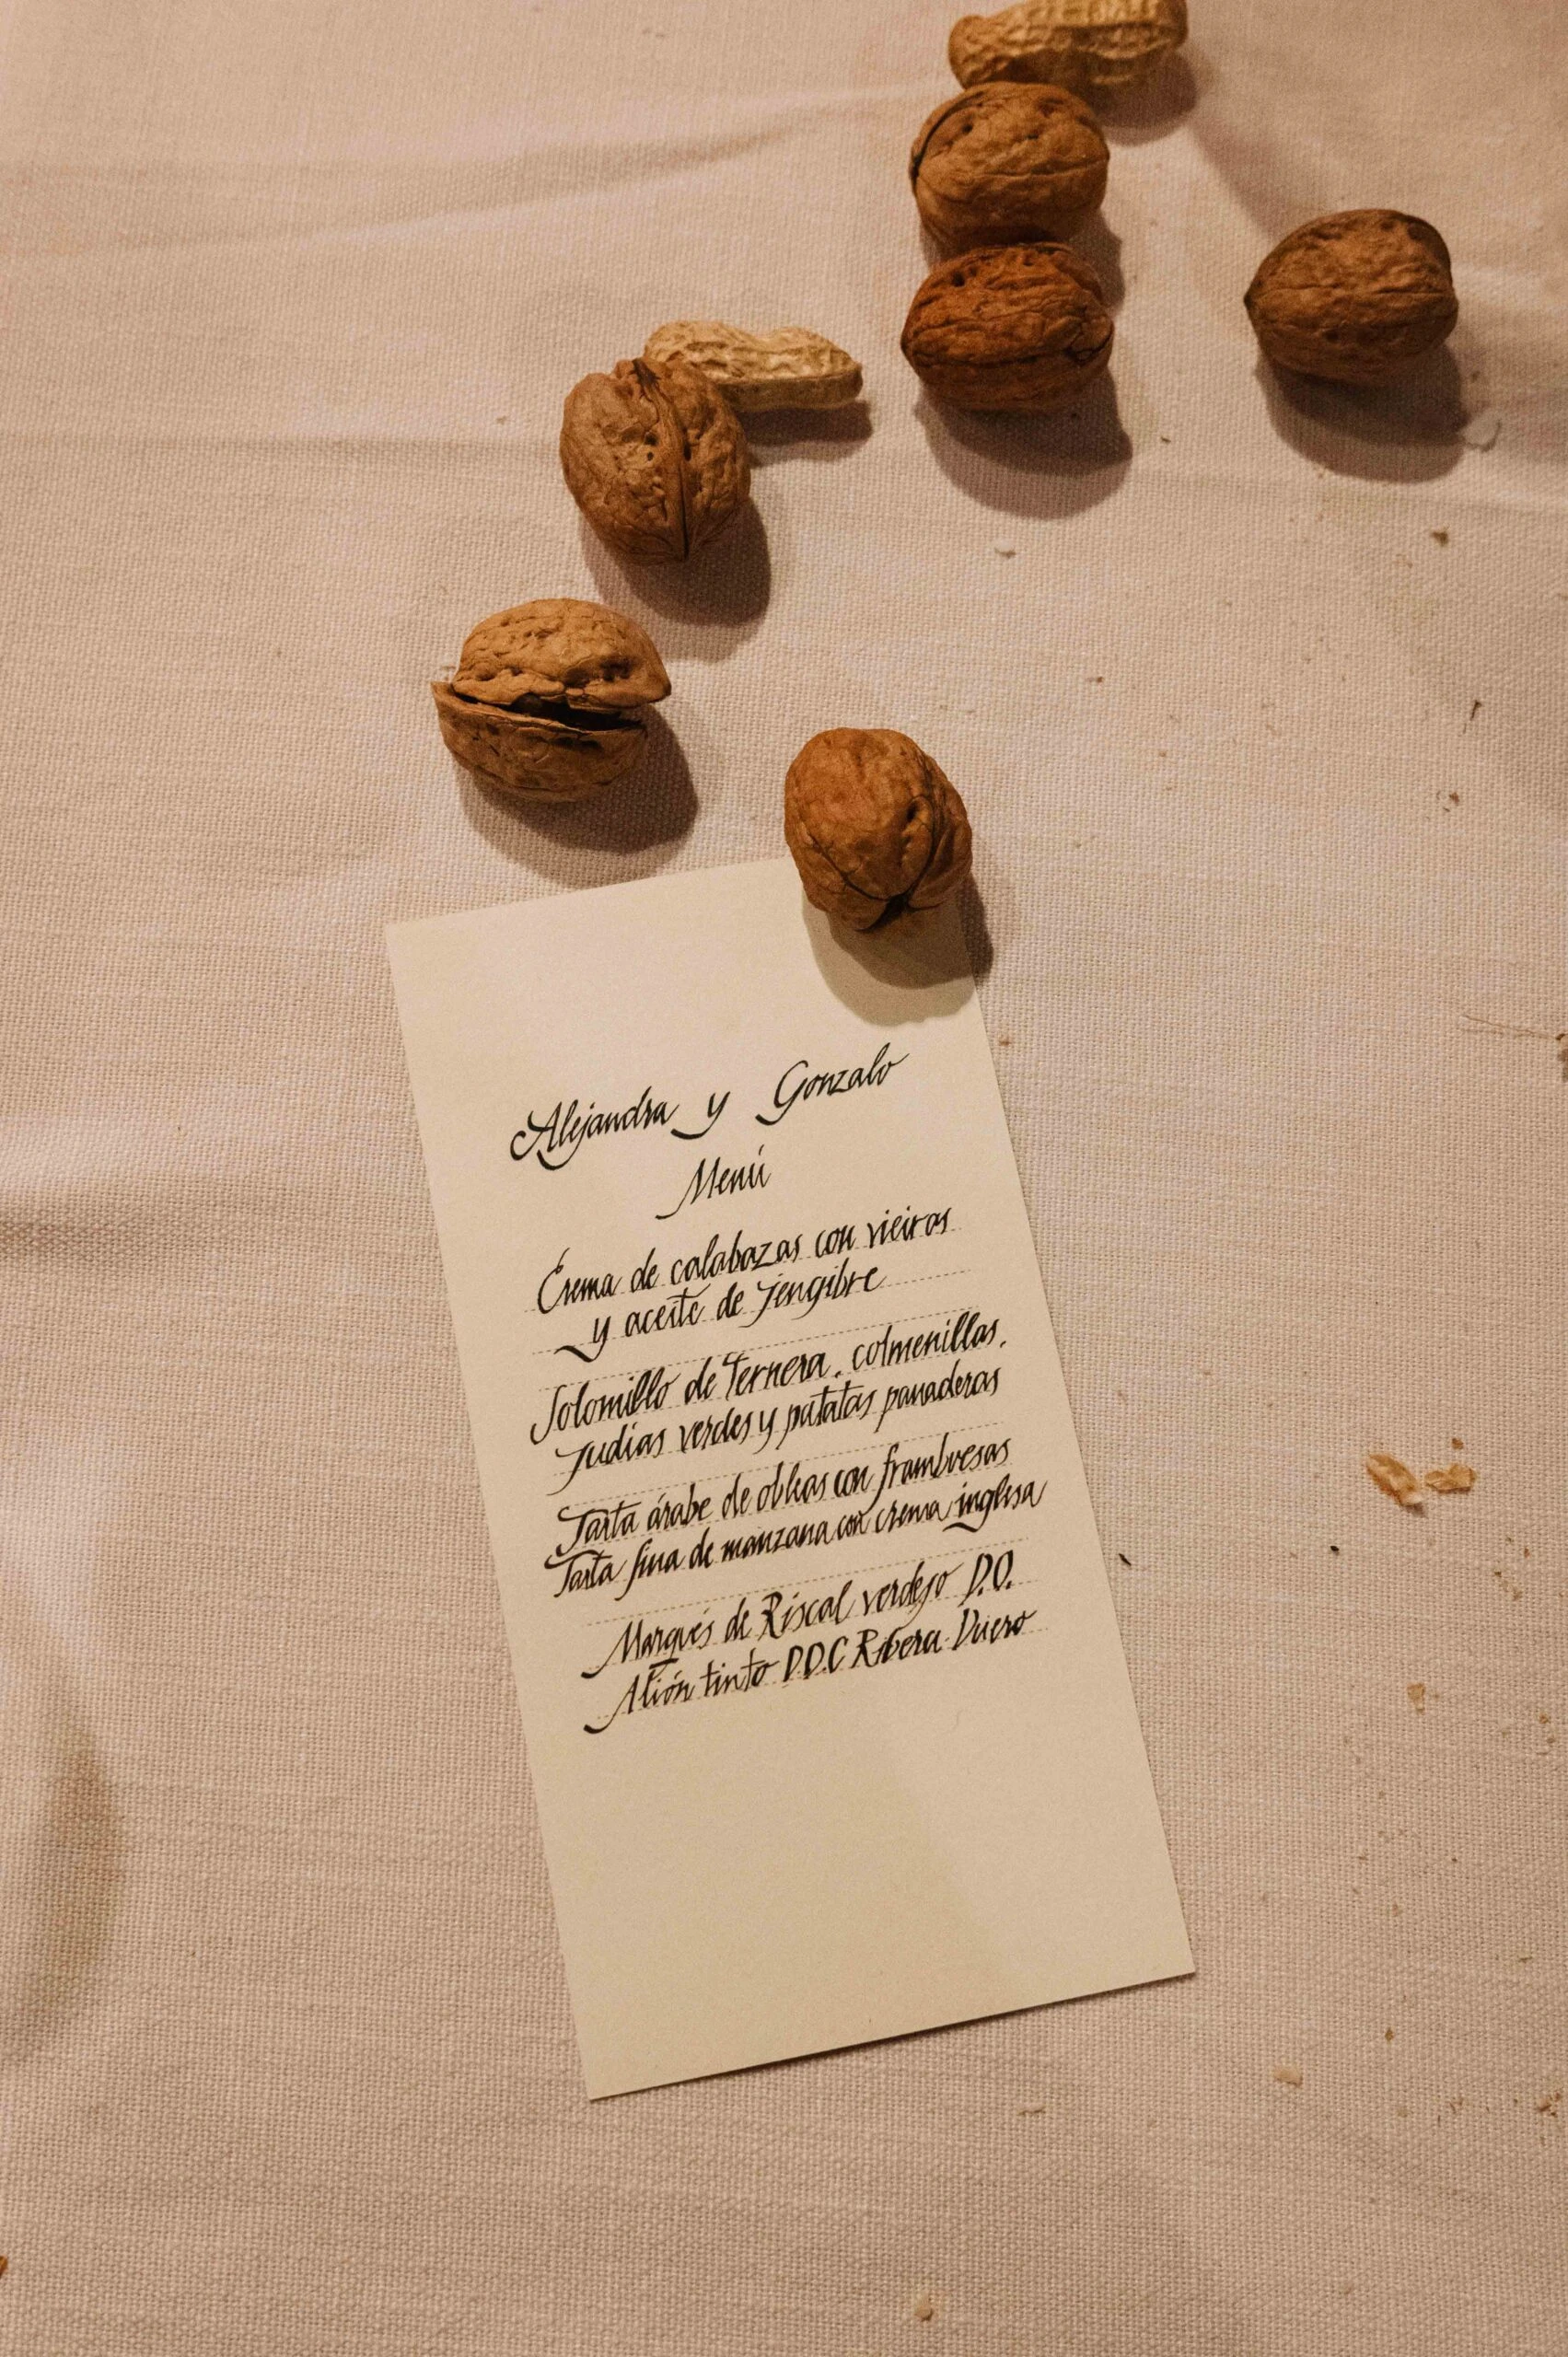 Alejandra y Gonzalo
Menú
Crema de calabazas con vieiras
y aceite de Jengibre
Solomillo de Ternera, colmenillas,
Judias verdes y patatas panaderas
Tarta árabe de obleas con frambuesas
Tarta fina de manzana con crema inglesa
Marqués de Riscal verdejo D.O.
Alión tinto D.O.C Ribera Duero